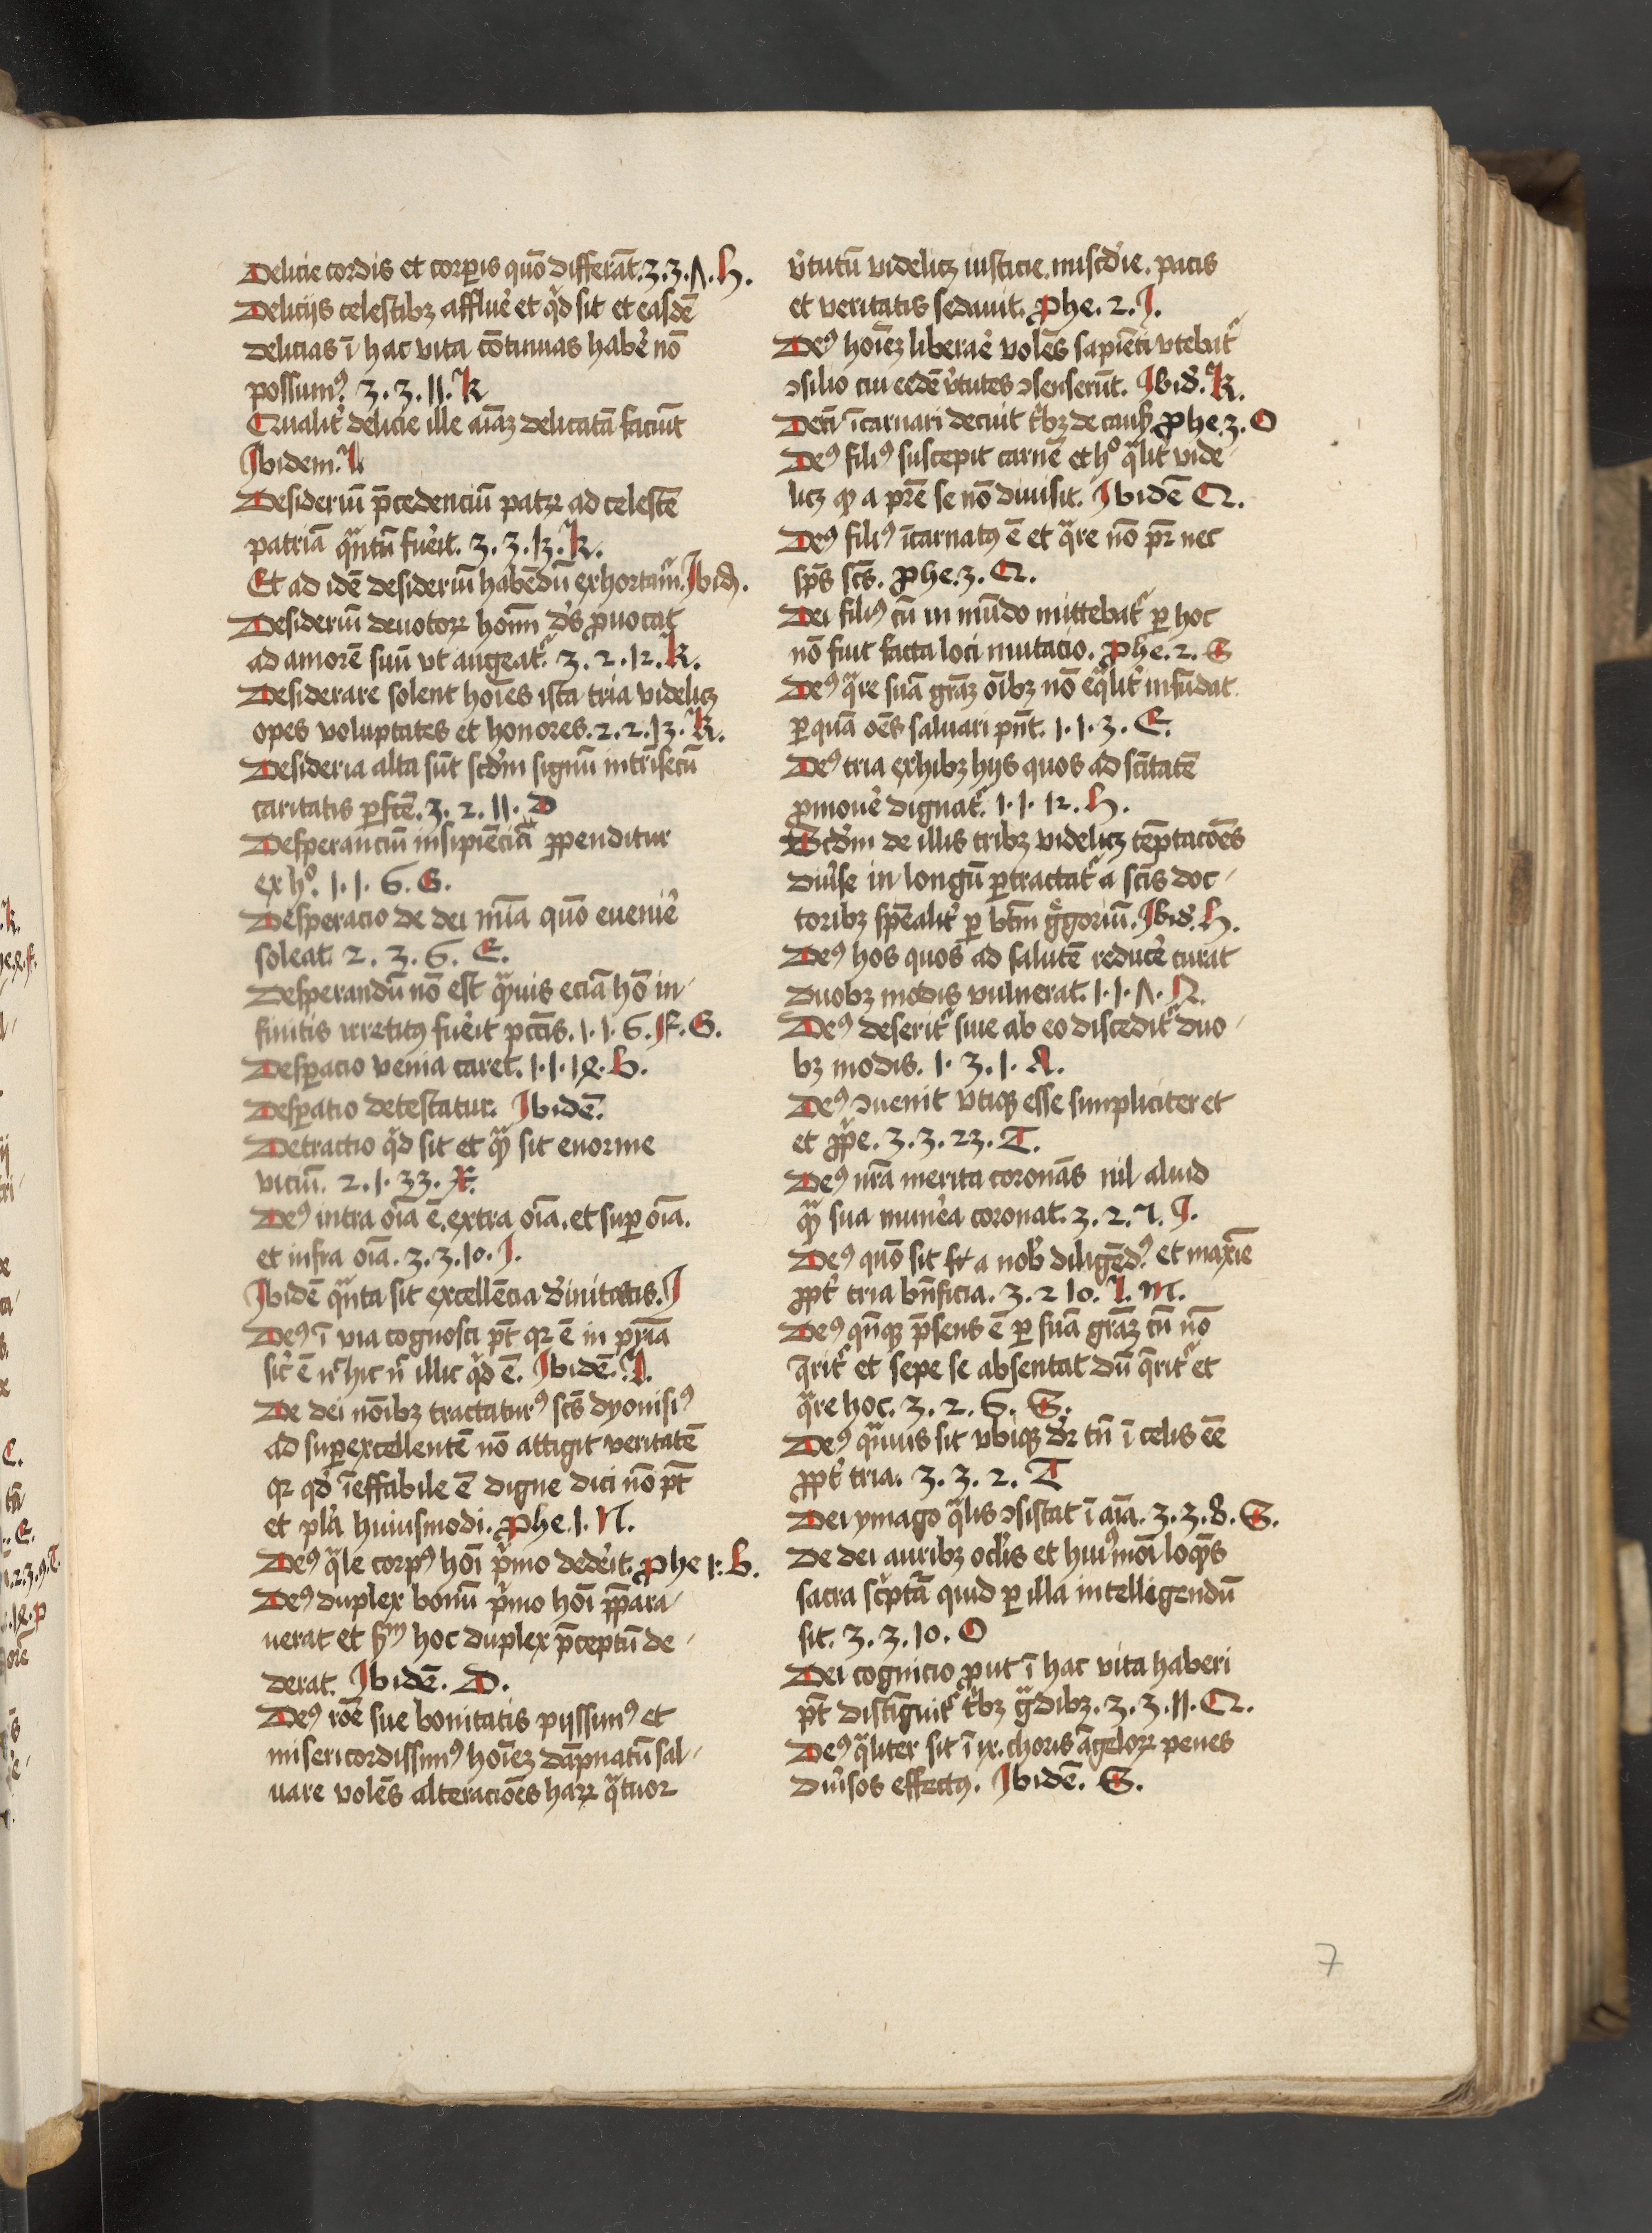 Delicie cordis et corꝑis quō differāt. 3. 3. Λ. H.
Delicijs celestibꝫ affluē et qͥd sit et easdē
delicias ī hac vita cōtinuas habē nō
possumꝰ. 3. 3. 11. K
Qualit̉ delicie ille aīaꝫ delicatā faciūt
Ibidem. L
Desideriū p̄cedenciū patꝝ ad celestē
patriā qͣntū fuēit. 3. 3. 13. K.
Et ad idē desideriū habēdū exhortat̉. Ibid.
Desideriū deuotoꝝ hoīm dˢs ꝓuocat
ad amorē suū vt augeat̉. 3. 2. 12. K.
Desiderare solent hoīes ista tria videlicꝫ
opes voluptates et honores. 2. 2. 13. K.
Desideria alta sūt scd̄m signū intrīsecū
caritatis ꝑfcē. 3. 2. 11. D
Desperanciū insipiēcia ꝑpenditur
ex hͦ. 1. 1. 6. G.
Desperacio de dei mīa quō euenīe
soleat. 2. 3. 6. E.
Desperandū nō est qͣuis eciā hō in-
finitis irretitꝰ fuēit pctīs. 1. 1. 6. F. G.
Desꝑacio venia caret. 1. 1. 18. b.
Desꝑatio detestatur. Ibidē.
Detractio qͥd sit et qͣꝫ sit enorme
viciū. 2. 1. 33. X.
Deꝰ intra oīa ē. extra oīa. et suꝑ oīa.
et infra oīa. 3. 3. 10. I.
Ibidē qͣnta sit excellēcia diuinitatis. I
Deꝰ ī via cognosci pt̄ qꝛ ē in pr̄ia
sic̉ ē nͨ hic nͨ illic qͥd ē. Ibidē. L.
De dei noībꝫ tractaturꝰ scˢ dyonisiꝰ
ad suꝑexcellentē nō attigit veritatē
qꝛ qd̉ īeffabile ē digne dici nō pt̄
et plͣa huiusmodi. Phe. 1. N.
Deꝰ qͣle corpꝰ hoī pͥmo dedēit. Phe 1. b.
Deꝰ duplex bonū pͥmo hoī p̄para-
uerat et sm̄ hoc duplex p̄ceptū de-
derat. Ibidē. D.
Deꝰ rōe sue bonitatis pijssimꝰ et
misericordissimꝰ hoīeꝫ dāpnatū sal-
uare volēs alteracioēs haꝝ qͣtuor
v̉tutū videlicꝫ iusticie. miscd̉ie. pacis
et veritatis sedauit. Phe. 2. I.
Deꝰ hoīeꝫ liberaē volēs sapiēti vtebat̉
ꝯsilio cui eedē v̉tutes ꝯsenserūt. Ibid̉. K.
Deū īcarnari decuit tͥbꝫ de causꝭ Phe. 3. O
Deꝰ filiꝰ suscepit carnē et hͦ qͣlit̉ vide-
licꝫ ꝙ a pr̄e se nō diuisit. Ibidē Q.
Deꝰ filiꝰ īcarnatꝰ ē et qͣre nō pr̄ nec
spūs scˢ. Phe. 3. Q.
Dei filiꝰ cū in mūdo mittebat̉ ꝑ hoc
nō fuit facta loci mutacio. Phe. 2. G
Deꝰ qͣre suā grāꝫ oībꝫ nō eqͣlit̉ infūdat
ꝑ quā oēs saluari pn̄t. 1. 1. 3. E.
Deꝰ tria exhibꝫ hijs quos ad sc̄itatē
ꝓmouē dignat̉. 1. 1. 12. H.
Scd̄m de illis tribꝫ videlicꝫ tēptacoēs
diūse in longū ꝑtractat̉ a scīs doc-
toribꝫ spēalit̉ ꝑ btm̄ gͤgoriū. Ibid̉. H.
Deꝰ hos quos ad salutē reducē curat
duobꝫ modis vulnerat. 1. 1. Λ. N.
Deꝰ deserit̉ siue ab eo discedit̉ duo-
bꝫ modis. 1. 3. 1. A.
Deꝰ ꝯuenit vtiqꝫ esse simpliciter et
et ꝓpͥe. 3. 3. 23. T.
Deꝰ nr̄a merita coronās nil aliud
qͣꝫ sua munēa coronat. 3. 2. Λ. I.
Deꝰ quō sit a nob̉ diligēdꝰ et maxīe
ꝓpt̉ tria bn̄ficia. 3. 2 10. L. M.
Deꝰ qn̄qꝫ p̄sens ē ꝑ suā grāꝫ cū nō
q̄rit̉ et sepe se absentat dū q̄rit̉ et
qͣre hoc. 3. 2. 6. S.
Deꝰ qͣuis sit vbiqꝫ dr̄ tn̄ ī celis eē
ꝓpt̉ tria. 3. 3. 2. T
Dei ymago qͣlis ꝯsistat ī aīa. 3. 3. 8. S.
De dei auribꝫ oclīs et huiꝰmoī loqͣꝫs
sacra scͥptā quid ꝑ illa intelligendū
sit. 3. 3. 10. O
Dei cognicio ꝓut ī hac vita haberi
pt̄ distīguit̉ tͥbꝫ gͣdibꝫ. 3. 3. 11. Q.
Deꝰ qͣliter sit ī ix. choris āgeloꝝ penes
diūsos effectꝰ. Ibidē. S.
7